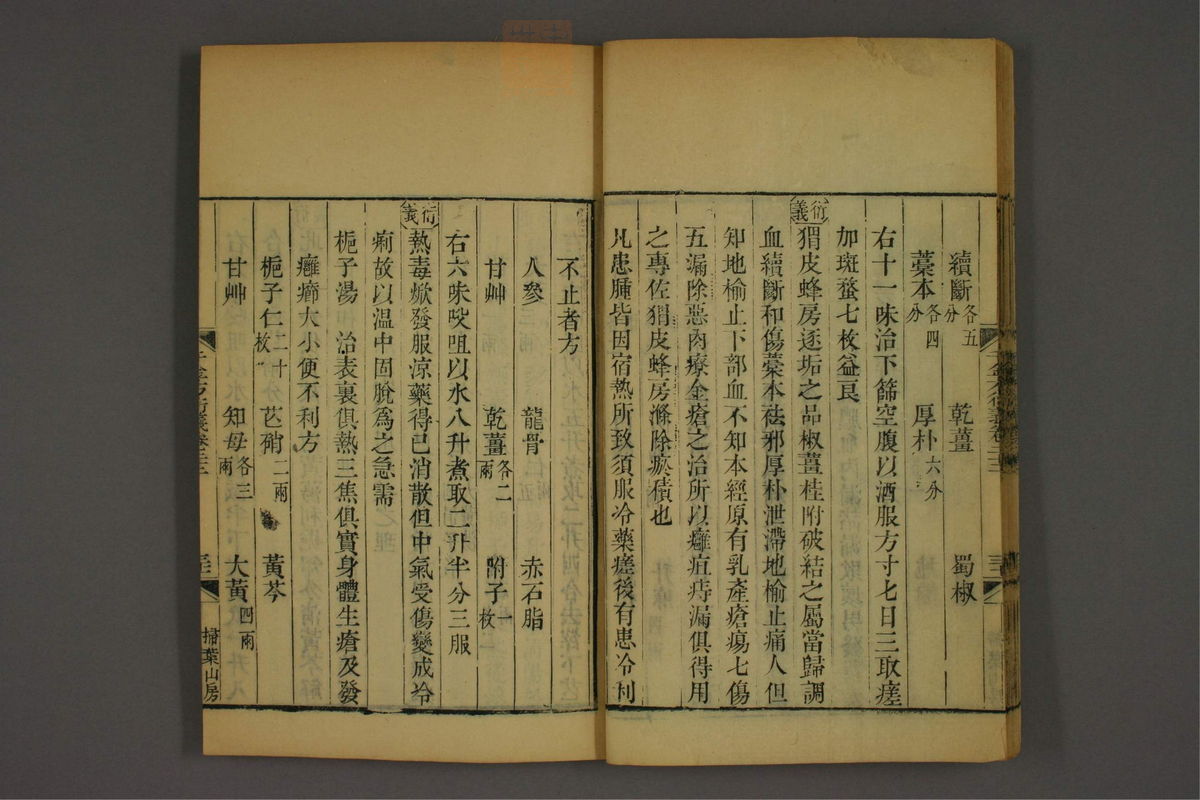 續斷各五分　乾薑　蜀椒
藁本各四分　厚朴六分
右十一味治下篩空腹以酒服方寸七日三取瘥
加斑蝥七枚益良
衍義
猬皮蜂房逐垢之品椒薑桂附破結之屬當歸調
血續斷和傷藁本祛邪厚朴泄滯地榆止痛人但
知地榆止下部血不知本經原有乳產瘡瘍七傷
五漏除惡肉療金瘡之治所以癰疽痔漏俱得用
之專佐猬皮蜂房滌除瘀積也
凡患腫皆因宿熱所致須服冷藥瘥後有患冷利
不止者方
人參三兩　龍骨　赤石脂
甘艸　乾薑各二兩　附子一枚
右六味㕮咀以水八升煮取二升半分三服
衍義
熱毒焮發服凉藥得已消散但中氣受傷變成冷
痢故以温中固脫為之急需
梔子湯　治表裏俱熱三焦俱實身體生瘡及發
癰癤大小便不利方
梔子仁二十枚　芒硝二兩　黃芩
甘艸　知母各三兩　大黃四兩
千金方衍義卷二十三
掃葉山房